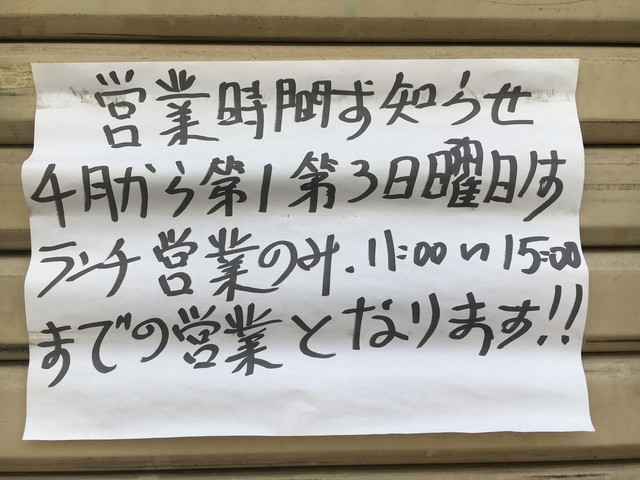 営業時間お知らせ
4月から第1第3日曜日は
ランチ営業のみ.11:00〜15:00
までの営業となります!!